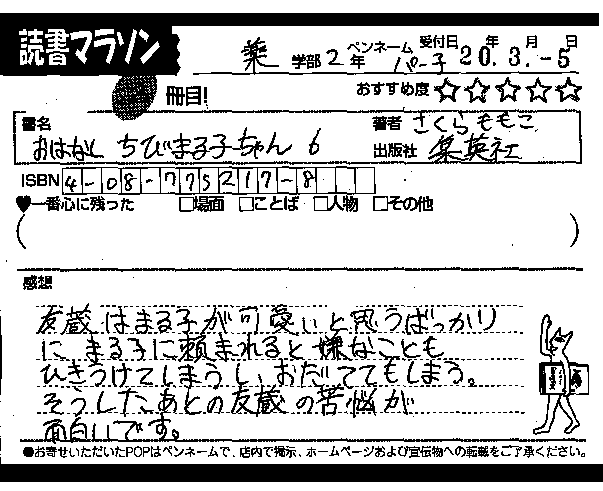 読書マラソン
薬 学部 2年 ペンネーム パー子 受付日 20年3月-5日
冊目! おすすめ度 ☆☆☆☆☆
書名 おはなし ちびまる子ちゃん 6
著者 さくらももこ
出版社 集英社
ISBN 4-08-775217-8
♥一番心に残った □場面 □ことば □人物 □その他
感想
友蔵はまる子が可愛いと思うばっかり
に、まる子に頼まれると嫌なことも
ひきうけてしまうし、おだててもしまう。
そうしたあとの友蔵の苦悩が
面白いです。
●お寄せいただいたPOPはペンネームで、店内で掲示、ホームページおよび宣伝物への転載をご了承ください。